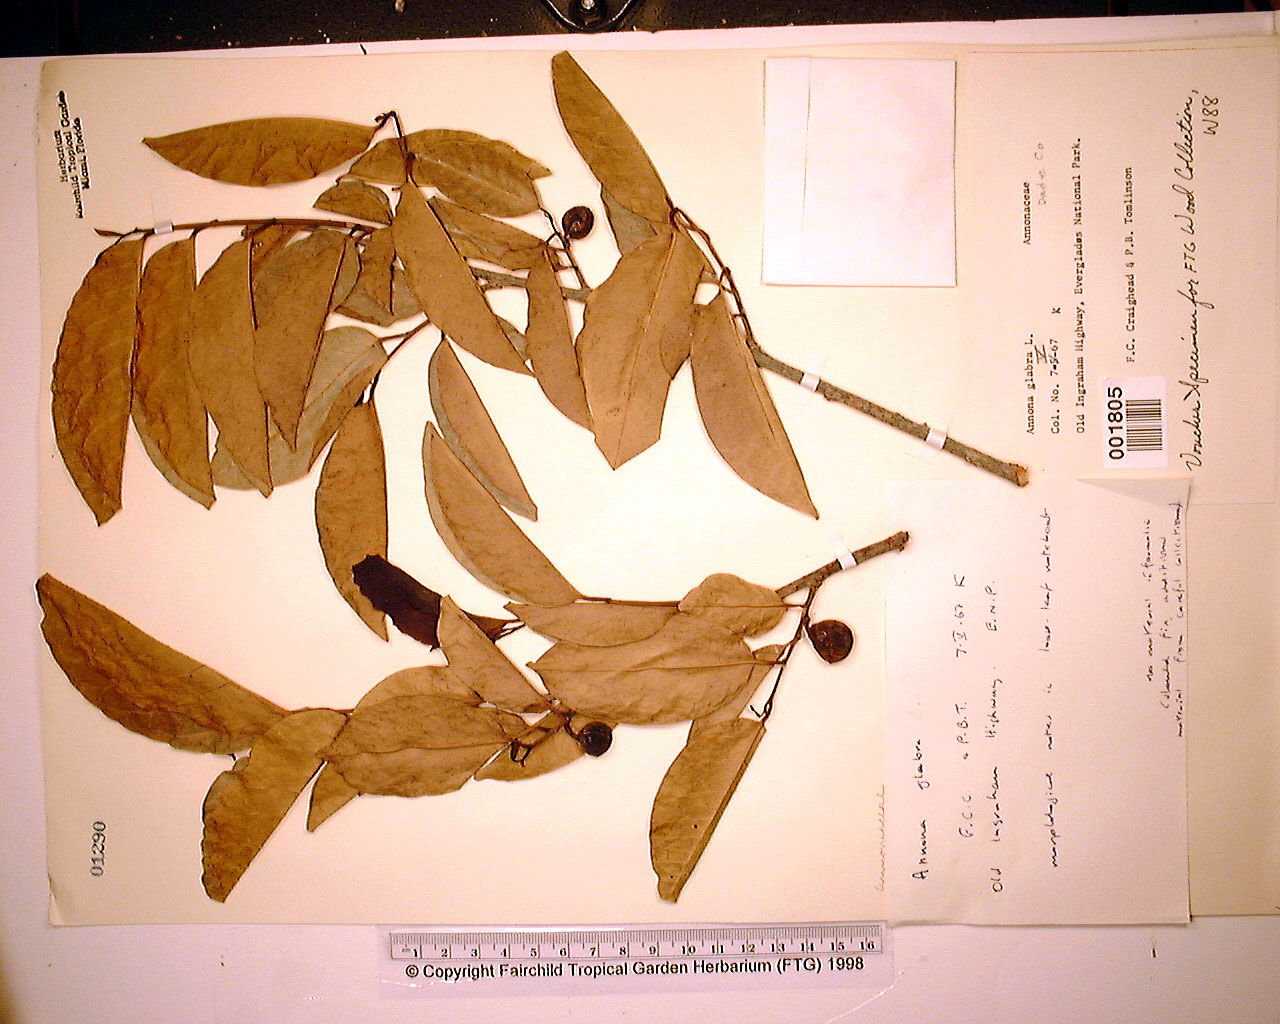 Herbarium
Fairchild Tropical Garden
Miami, Florida
01290
Annonaceae
Dade Co
Annona glabra L.
IV
Col. No. 7-V-67 K
Old Ingraham Highway, Everglades National Park.
F.C. Craighead & P.B. Tomlinson
001805
Voucher Specimen for FTG Wood Collection,
W88
Annonaceae
Annona glabra
F.C.C. & P.B.T. 7-V-67 K
Old Ingraham Highway. E.N.P.
morphological notes in loose-leaf notebook
no material in formalin
material from careful collections
1 2 3 4 5 6 7 8 9 10 11 12 13 14 15 16
© Copyright Fairchild Tropical Garden Herbarium (FTG) 1998